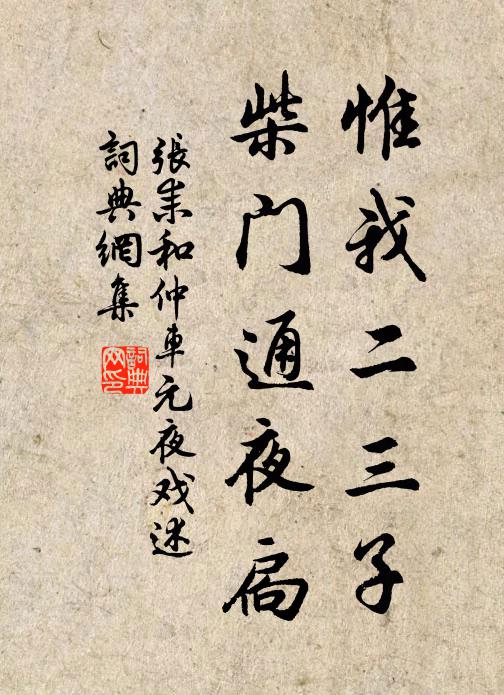 惟我二三子
柴門通夜扃
張耒和仲車元夜戏述
詞典網集
詞典
网印